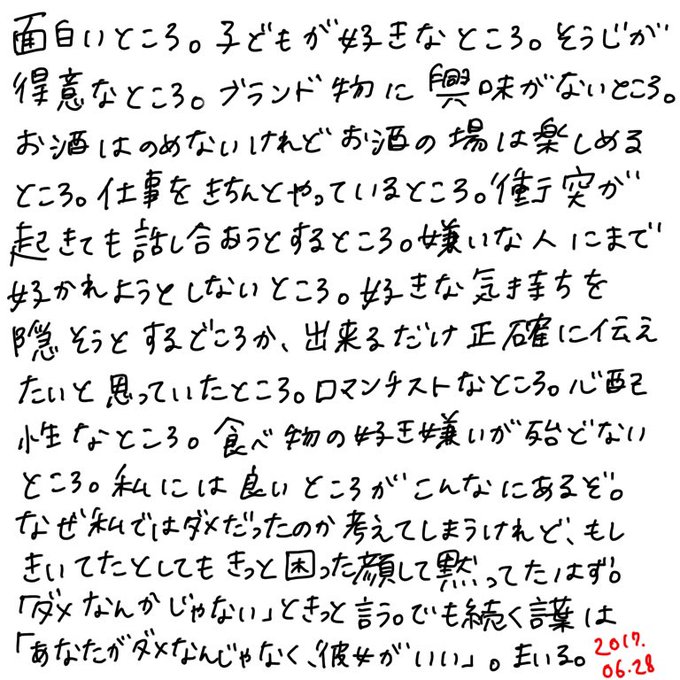 面白いところ。子どもが好きなところ。そうじが
得意なところ。ブランド物に興味がないところ。
お酒はのめないけれどお酒の場は楽しめる
ところ。仕事をきちんとやっているところ。衝突が
起きても話し合おうとするところ。嫌いな人にまで
好かれようとしないところ。好きな気持ちを
隠そうとするどころか、出来るだけ正確に伝え
たいと思っていたところ。ロマンチストなところ。心配
性なところ。食べ物の好き嫌いが殆どない
ところ。私には良いところがこんなにあるぞ。
なぜ私ではダメだったのか考えてしまうけれど、もし
きいてたとしてもきっと困った顔して黙ってたはず。
「ダメなんかじゃない」ときっと言う。でも続く言葉は
「あなたがダメなんじゃなく、彼女がいい」。まいる。
2017.
06.28